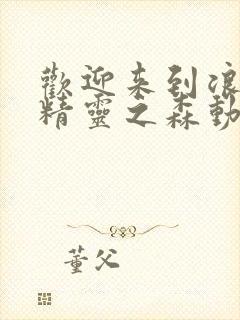 歡迎来到浪
精靈之森動
董父